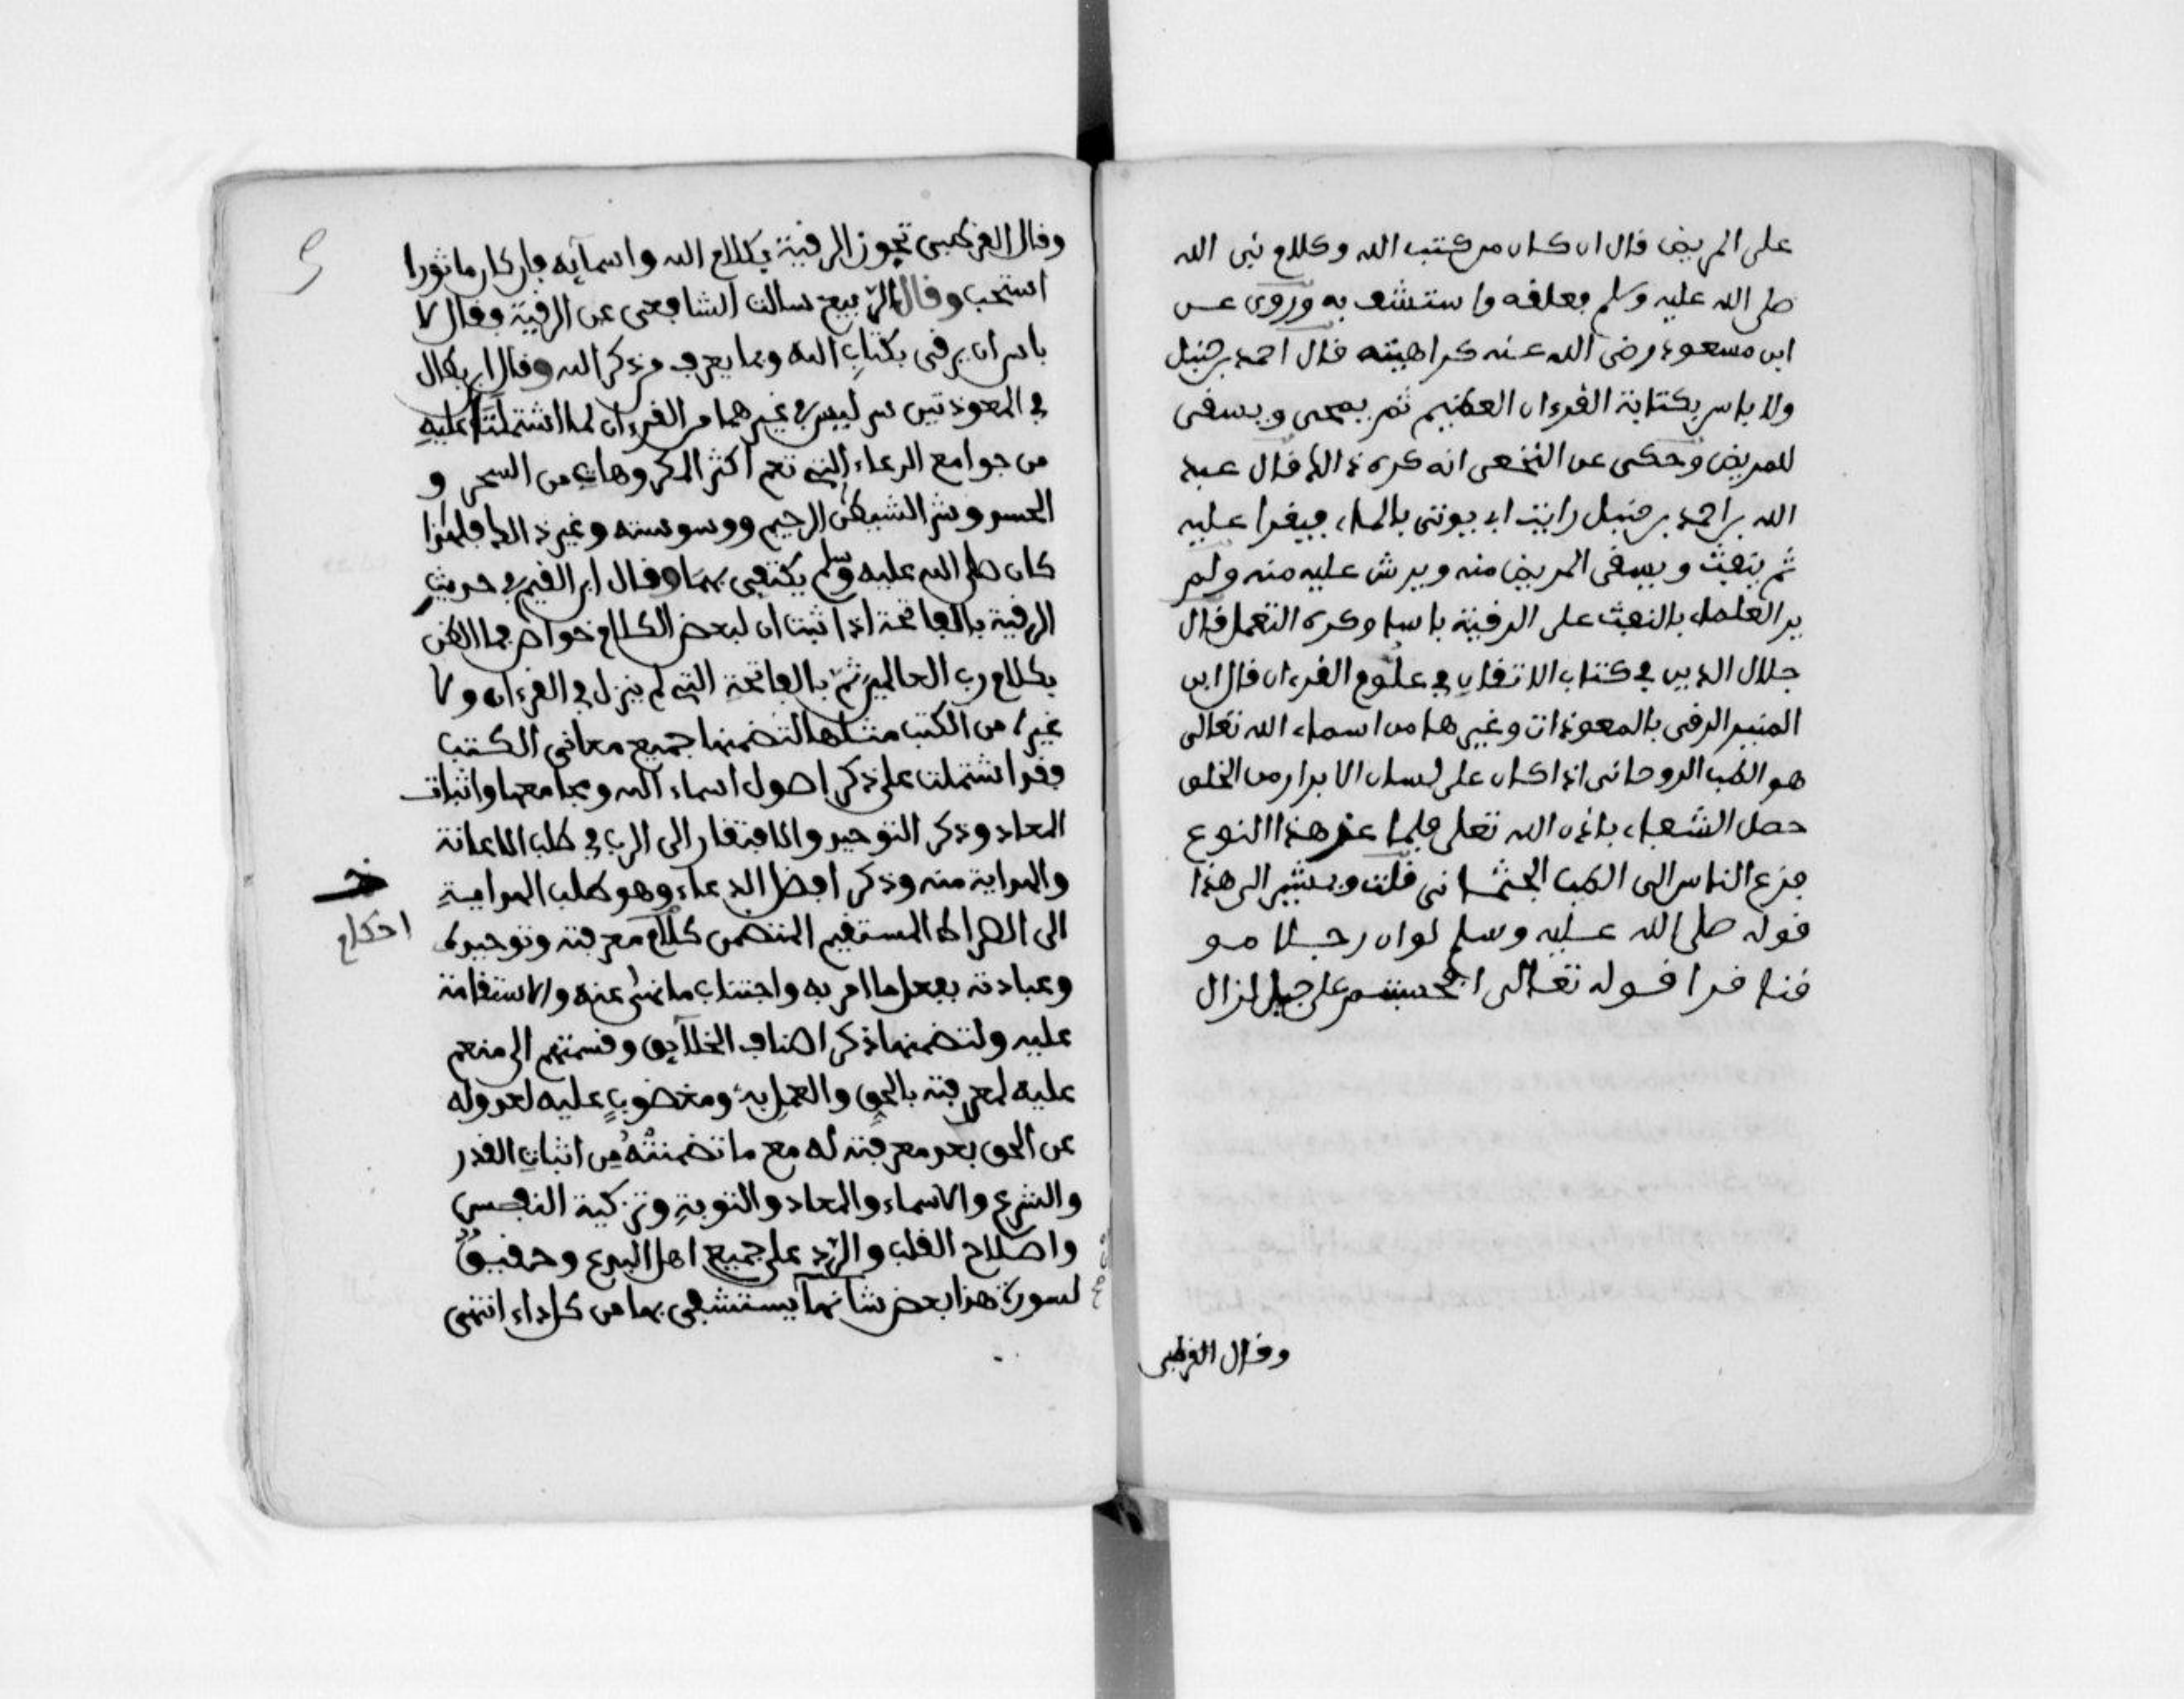 على المريض قال ان كان من كتب الله وكلام نبي الله
صلى الله عليه وسلم فعلقه واستشف به وروي عن
ابن مسعود رضي الله عنه كراهيته قال احمد بن حنبل
ولا باس بكتابة القرءان العظيم ثم يمحى ويسقى
للمريض وحكى عن النخعي انه كره ذالك قال عبد
الله بن احمد بن حنبل رايت ابي يوتى بالماء فيقرا عليه
ثم ينفث ويسقى المريض منه ويرش عليه منه ولم
ير العلماء بالنفث على الرقية باسا وكره التفل قال
جلال الدين في كتاب الاتقان في علوم القرءان قال ابن
المنير الرقى بالمعوذات وغيرها من اسماء الله تعالى
هو الطب الروحاني اذا كان على لسان الابرار من الخلق
حصل الشفاء باذن الله تعلى فلما عز هذا النوع
فزع الناس الى الطب الجثماني قلت ويشير الى هذا
قوله صلى الله عليه وسلم لو ان رجلا مو
قنا قرا قوله تعالى افحسبتم على جبل لزال
وقال القرطبي
وقال القرطبي تجوز الرقية بكلام الله واسمآيه فان كان ماثورا
استحب وقال الربيع سالت الشافعي عن الرقية فقال لا
باس ان يرقى بكتاب الله وبما يعرف من ذكر الله وقال ابن بطال
في المعوذتين سر ليس في غيرهما من القرءان لما اشتملتا عليه
من جوامع الدعاء التي تعم اكثر المكروهات من السحر و
الحسد وشر الشيطن الرجيم ووسوسته وغير ذالك فلهذا
كان صلى الله عليه وسلم يكتفي بهما وقال ابن القيم في حديث
الرقية بالفاتحة اذا ثبت ان لبعض الكلام خواص فما الظن
بكلام رب العالمين ثم بالفاتحة التي لم ينزل في القرءان ولا
غيره من الكتب مثلها لتضمنها جميع معاني الكتب
فقد اشتملت على ذكر اصول اسماء الله ومجامعها واثبات
المعاد وذكر التوحيد والافتقار الى الرب في طلب الاعانة
والهداية منه وذكر افضل الدعاء وهو طلب الهداية
الى الصراط المستقيم المتضمن كلام معرفته وتوحيده
احكام
وعبادته بفعل ما امر به واجتناب ما نهى عنه والاستقامة
عليه ولتضمنها ذكر اصناف الخلآيق وقسمتهم الى منعم
عليه لمعرفته بالحق والعمل به ومغضوب عليه لعدوله
عن الحق بعد معرفته له مع ما تضمنته من اثبات القدر
والشرع والاسماء والمعاد والتوبة وتزكية النفس
واصلاح القلب والرد على جميع اهل البدع وحقيق
لسورة هذا بعض شانها يستشفى بها من كل داء انتهى